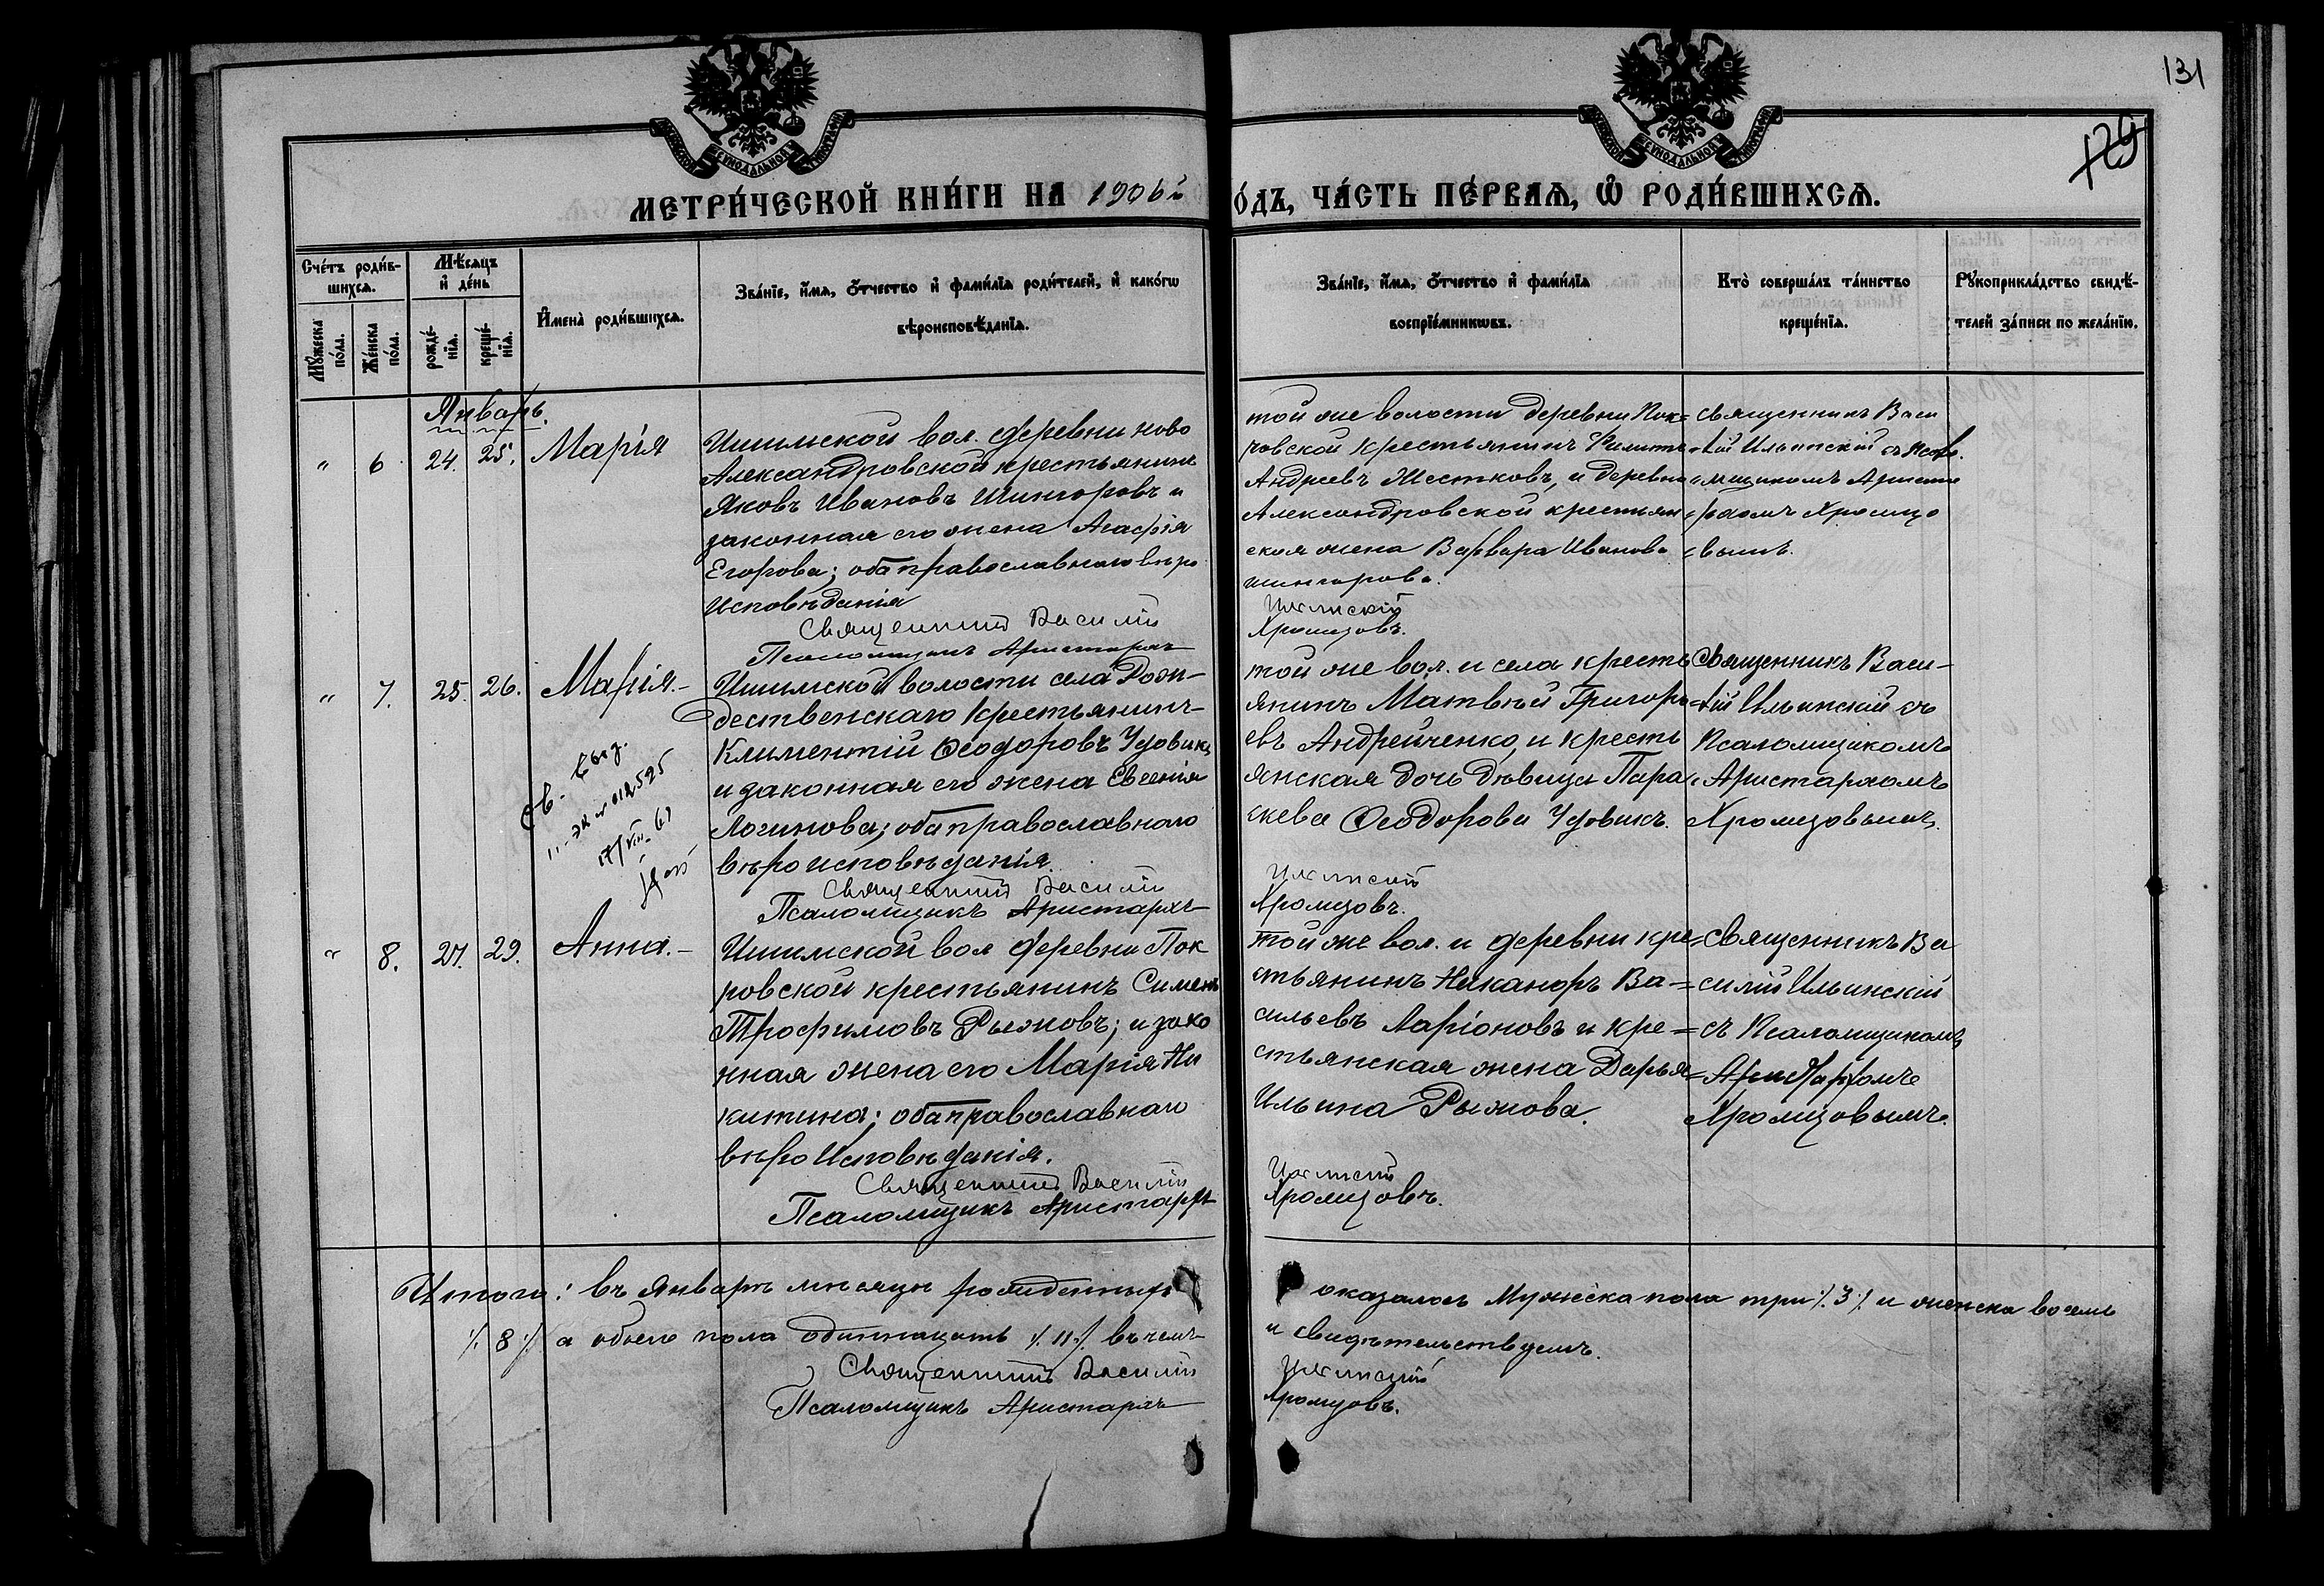 131
129
СѴНОДАЛЬНОЙ
СѴНОДАЛЬНОЙ
МЕТРИ́ЧЕСКОЙ КНИ́ГИ НА 1906 г
ÓДЪ, ЧА́СТЬ ПЕ́РВАѦ, Ѽ РОДИ́ВШИХСѦ.
Сче́тъ роди́в-
шихсѧ.
Мꙋжеска по́ла.
Же́нска по́ла.
Мѣ́сѧцъ
и҆ де́нь
рожде́-
нїѧ.
креще́-
нїѧ.
И҆мена̀ роди́вшихсѧ.
Зва́нїе, и҆́мѧ, ѻ҆́тчество и҆ фами́лїѧ роди́телей, и҆ како́гѡ
вѣроисповѣ́данїѧ.
Зва́нїе, и҆́мѧ, ѻ҆́тчество и҆ фами́лїѧ
воспрїе́мникѡвъ.
Кто̀ соверша́лъ та́инство
креще́нїѧ.
Рꙋкоприкла́дство свидѣ́-
телей за́писи по жела́нїю.
Январь.
" 6 24. 25. Марія
Ишимской вол. деревни ново
Александровской крестьянинъ
Яковъ Ивановъ Шингаровъ и
законная его жена Агафія
Егорова; оба православнаго вѣро
исповѣданія
Священникъ Василій
Псаломщикъ Аристархъ
той же волости деревни Пок=
ровской крестьянинъ
Андреевъ Жестковъ, и деревни
Александровской крестьян
ская жена Варвара Иванова
шингарова.
Ильинскій
Хромцовъ.
священникъ Васи
лій Ильинскій съ Псало
мщикомъ Аристар
рхомъ Хромцо
вымъ.
" 7. 25. 26. Марія.-
Ишимской волости села Рож-
дественскаго Крестьянинъ
Климентій Ѳеодоровъ Удовикъ
и законная его жена Евгенія
Логинова; оба православнаго
вѣроисповѣданія.
Священникъ Василій
Псаломщикъ Аристархъ
Св. выд.
II-ЭК № 012525
17/VIII-61
той же вол. и села кресть
янинъ Матвѣй Григорь
евъ Андрейченко, и кресть
янская дочь дѣвица Пара
скева Ѳеодорова Удовикъ.
Ильинскій
Хромцовъ.
Священникъ Васи-
лій Ильинскій съ
Псаломщикомъ
Аристархомъ
Хромцовымъ.
" 8. 27. 29. Анна.-
Ишимской вол деревни Пок
ровской крестьянинъ Сименъ
Трофимовъ Рыжовъ; и зако
нная жена его Марія Ни
китина; оба православнаго
вѣроисповѣданія.
Священникъ Василій
Псаломщикъ Аристархъ
той же вол. и деревни кре=
стьянинъ Никаноръ Ва-
сильевъ Ларіоновъ и кре-
стьянская жена Дарья
Ильина Рыжова.
Ильинскій
Хромцовъ.
священникъ Ва
силій Ильинскій
съ Псаломщикомъ
Аристархомъ
Хромцовымъ.
Итого: въ Январѣ мѣсяцѣ рожденныхъ оказалось Мужеска пола три ٪ 3 ٪ и женска восемь
٪ 8 ٪ а обоего пола одиннадцать ٪ 11 ٪ въ чемъ и свидѣтельствуемъ.
Священникъ Василій Ильинскій
Псаломщикъ Аристархъ Хромцовъ.